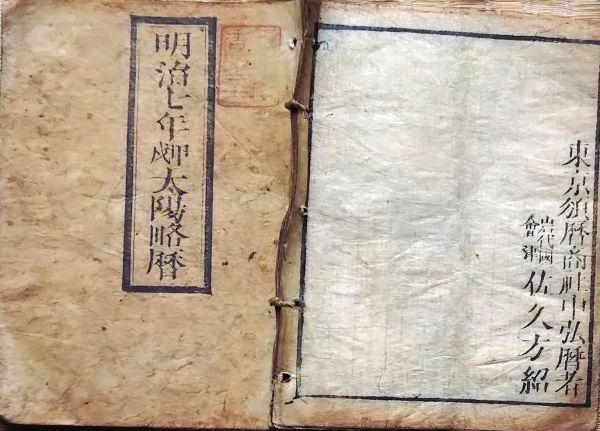 明治七年甲戌太陽略暦
東京頒暦商社中弘暦者
岩代國
會津
佐久方紹